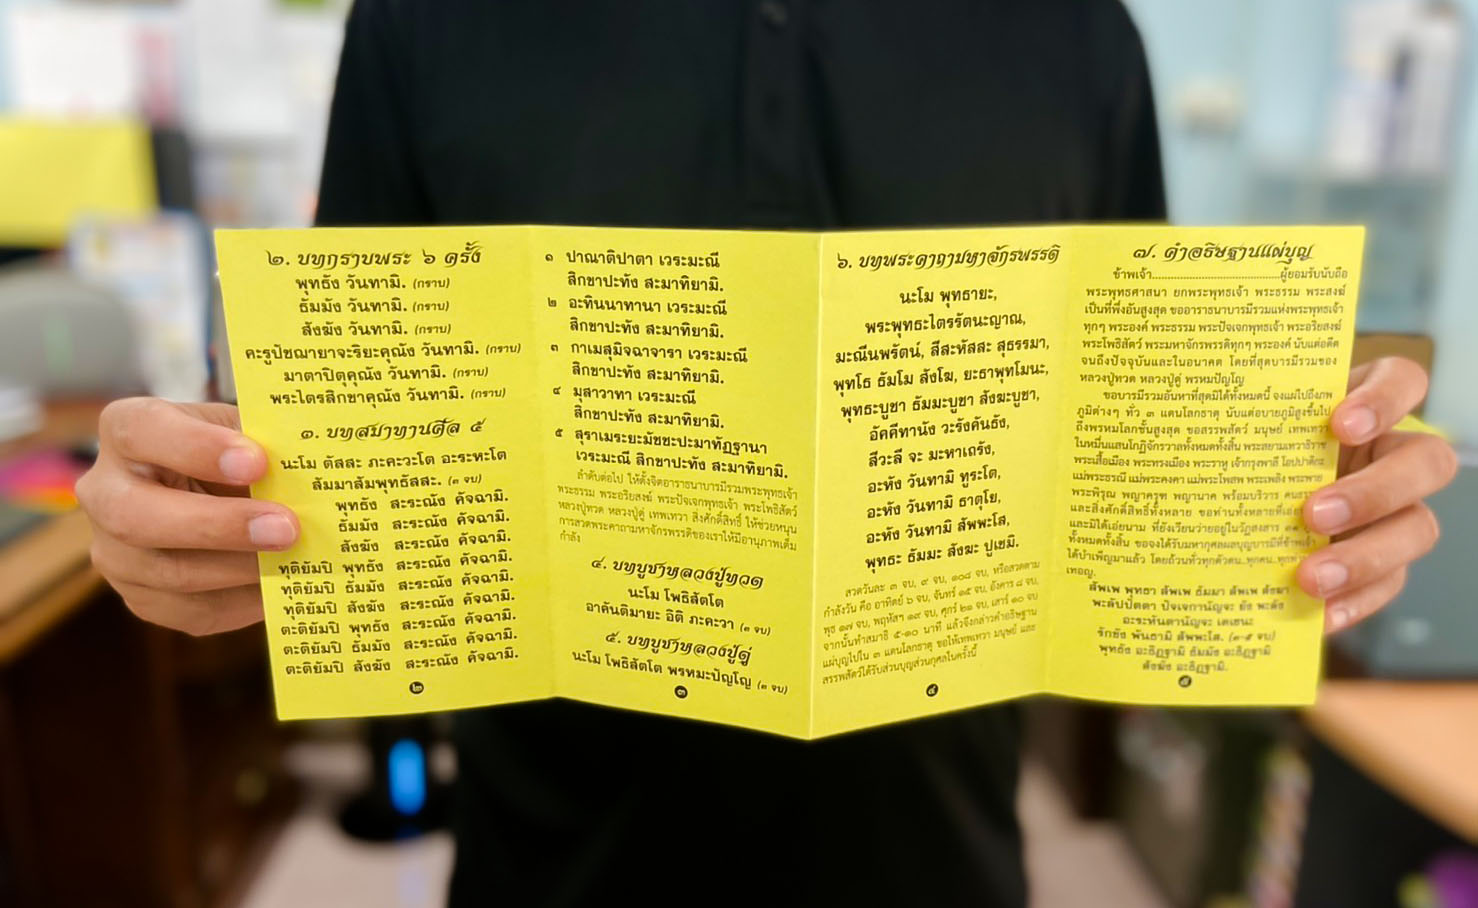 ๒. บทกราบพระ ๖ ครั้ง
พุทธัง วันทามิ. (กราบ)
ธัมมัง วันทามิ. (กราบ)
สังฆัง วันทามิ. (กราบ)
คะรูปัชฌายาจะริยะคุณัง วันทามิ. (กราบ)
มาตาปิตุคุณัง วันทามิ. (กราบ)
พระไตรสิกขาคุณัง วันทามิ. (กราบ)
๑. บทสมาทานศีล ๕
นะโม ตัสสะ ภะคะวะโต อะระหะโต
สัมมาสัมพุทธัสสะ. (๓ จบ)
พุทธัง สะระณัง คัจฉามิ.
ธัมมัง สะระณัง คัจฉามิ.
สังฆัง สะระณัง คัจฉามิ.
ทุติยัมปิ พุทธัง สะระณัง คัจฉามิ.
ทุติยัมปิ ธัมมัง สะระณัง คัจฉามิ.
ทุติยัมปิ สังฆัง สะระณัง คัจฉามิ.
ตะติยัมปิ พุทธัง สะระณัง คัจฉามิ.
ตะติยัมปิ ธัมมัง สะระณัง คัจฉามิ.
ตะติยัมปิ สังฆัง สะระณัง คัจฉามิ.
๒
๑ ปาณาติปาตา เวระมะณี
สิกขาปะทัง สะมาทิยามิ.
๒ อะทินนาทานา เวระมะณี
สิกขาปะทัง สะมาทิยามิ.
๓ กาเมสุมิจฉาจารา เวระมะณี
สิกขาปะทัง สะมาทิยามิ.
๔ มุสาวาทา เวระมะณี
สิกขาปะทัง สะมาทิยามิ.
๕ สุราเมระยะมัชชะปะมาทัฏฐานา
เวระมะณี สิกขาปะทัง สะมาทิยามิ.
ลำดับต่อไป ให้ตั้งจิตอาราธนาบารมีรวมพระพุทธเจ้า
พระธรรม พระอริยสงฆ์ พระปัจเจกพุทธเจ้า พระโพธิสัตว์
หลวงปู่ทวด หลวงปู่ดู่ เทพเทวา สิ่งศักดิ์สิทธิ์ ให้ช่วยหนุน
การสวดพระคาถามหาจักรพรรดิของเราให้มีอานุภาพเต็ม
กำลัง
๔. บทบูชาหลวงปู่ทวด
นะโม โพธิสัตโต
อาคันติมายะ อิติ ภะคะวา (๓ จบ)
๕. บทบูชาหลวงปู่ดู่
นะโม โพธิสัตโต พรหมะปัญโญ (๓ จบ)
๓
๖. บทพระคาถามหาจักรพรรดิ
นะโม พุทธายะ,
พระพุทธะไตรรัตนะญาณ,
มะณีนพรัตน์, สีสะหัสสะ สุธรรมา,
พุทโธ ธัมโม สังโฆ, ยะธาพุทโมนะ,
พุทธะบูชา ธัมมะบูชา สังฆะบูชา,
อัคคีทานัง วะรังคันธัง,
สีวะลี จะ มะหาเถรัง,
อะหัง วันทามิ ทูระโต,
อะหัง วันทามิ ธาตุโย,
อะหัง วันทามิ สัพพะโส,
พุทธะ ธัมมะ สังฆะ ปูเชมิ.
สวดวันละ ๓ จบ, ๙ จบ, ๑๐๘ จบ, หรือสวดตาม
กำลังวัน คือ อาทิตย์ ๖ จบ, จันทร์ ๑๕ จบ, อังคาร ๘ จบ,
พุธ ๑๗ จบ, พฤหัสฯ ๑๙ จบ, ศุกร์ ๒๑ จบ, เสาร์ ๑๐ จบ
จากนั้นทำสมาธิ ๕-๑๐ นาที แล้วจึงกล่าวคำอธิษฐาน
แผ่บุญไปใน ๓ แดนโลกธาตุ ขอให้เทพเทวา มนุษย์ และ
สรรพสัตว์ได้รับส่วนบุญส่วนกุศลในครั้งนี้
๔
๗. คำอธิษฐานแผ่บุญ
ข้าพเจ้า..........................................ผู้ยอมรับนับถือ
พระพุทธศาสนา ยกพระพุทธเจ้า พระธรรม พระสงฆ์
เป็นที่พึ่งอันสูงสุด ขออาราธนาบารมีรวมแห่งพระพุทธเจ้า
ทุกๆ พระองค์ พระธรรม พระปัจเจกพุทธเจ้า พระอริยสงฆ์
พระโพธิสัตว์ พระมหาจักรพรรดิทุกๆ พระองค์ นับแต่อดีต
จนถึงปัจจุบันและในอนาคต โดยที่สุดบารมีรวมของ
หลวงปู่ทวด หลวงปู่ดู่ พรหมปัญโญ
ขอบารมีรวมอันหาที่สุดมิได้ทั้งหมดนี้ จงแผ่ไปถึงภพ
ภูมิต่างๆ ทั่ว ๓ แดนโลกธาตุ นับแต่อบายภูมิสูงขึ้นไป
ถึงพรหมโลกชั้นสูงสุด ขอสรรพสัตว์ มนุษย์ เทพเทวา
ในหมื่นแสนโกฏิจักรวาลทั้งหมดทั้งสิ้น พระสยามเทวาธิราช
พระเสื้อเมือง พระทรงเมือง พระราหู เจ้ากรุงพาลี โอปปาติกะ
แม่พระธรณี แม่พระคงคา แม่พระโพสพ พระเพลิง พระพาย
พระพิรุณ พญาครุฑ พญานาค พร้อมบริวาร
และสิ่งศักดิ์สิทธิ์ทั้งหลาย ขอท่านทั้งหลายที่
และมิได้เอ่ยนาม ที่ยังเวียนว่ายอยู่ในวัฏสงสาร ๓๑
ทั้งหมดทั้งสิ้น ขอจงได้รับมหากุศลผลบุญบารมีที่ข้าพเจ้า
ได้บำเพ็ญมาแล้ว โดยถ้วนทั่วทุกตัวตน..ทุกคน..
เทอญ.
สัพเพ พุทธา สัพเพ ธัมมา สัพเพ สังฆา
พะลัปปัตตา ปัจเจกานัญจะ ยัง พะลัง
อะระหันตานัญจะ เตเชนะ
รักขัง พันธามิ สัพพะโส. (๓-๕ จบ)
พุทธัง อะธิฏฐามิ ธัมมัง อะธิฏฐามิ
สังฆัง อะธิฏฐามิ.
๕